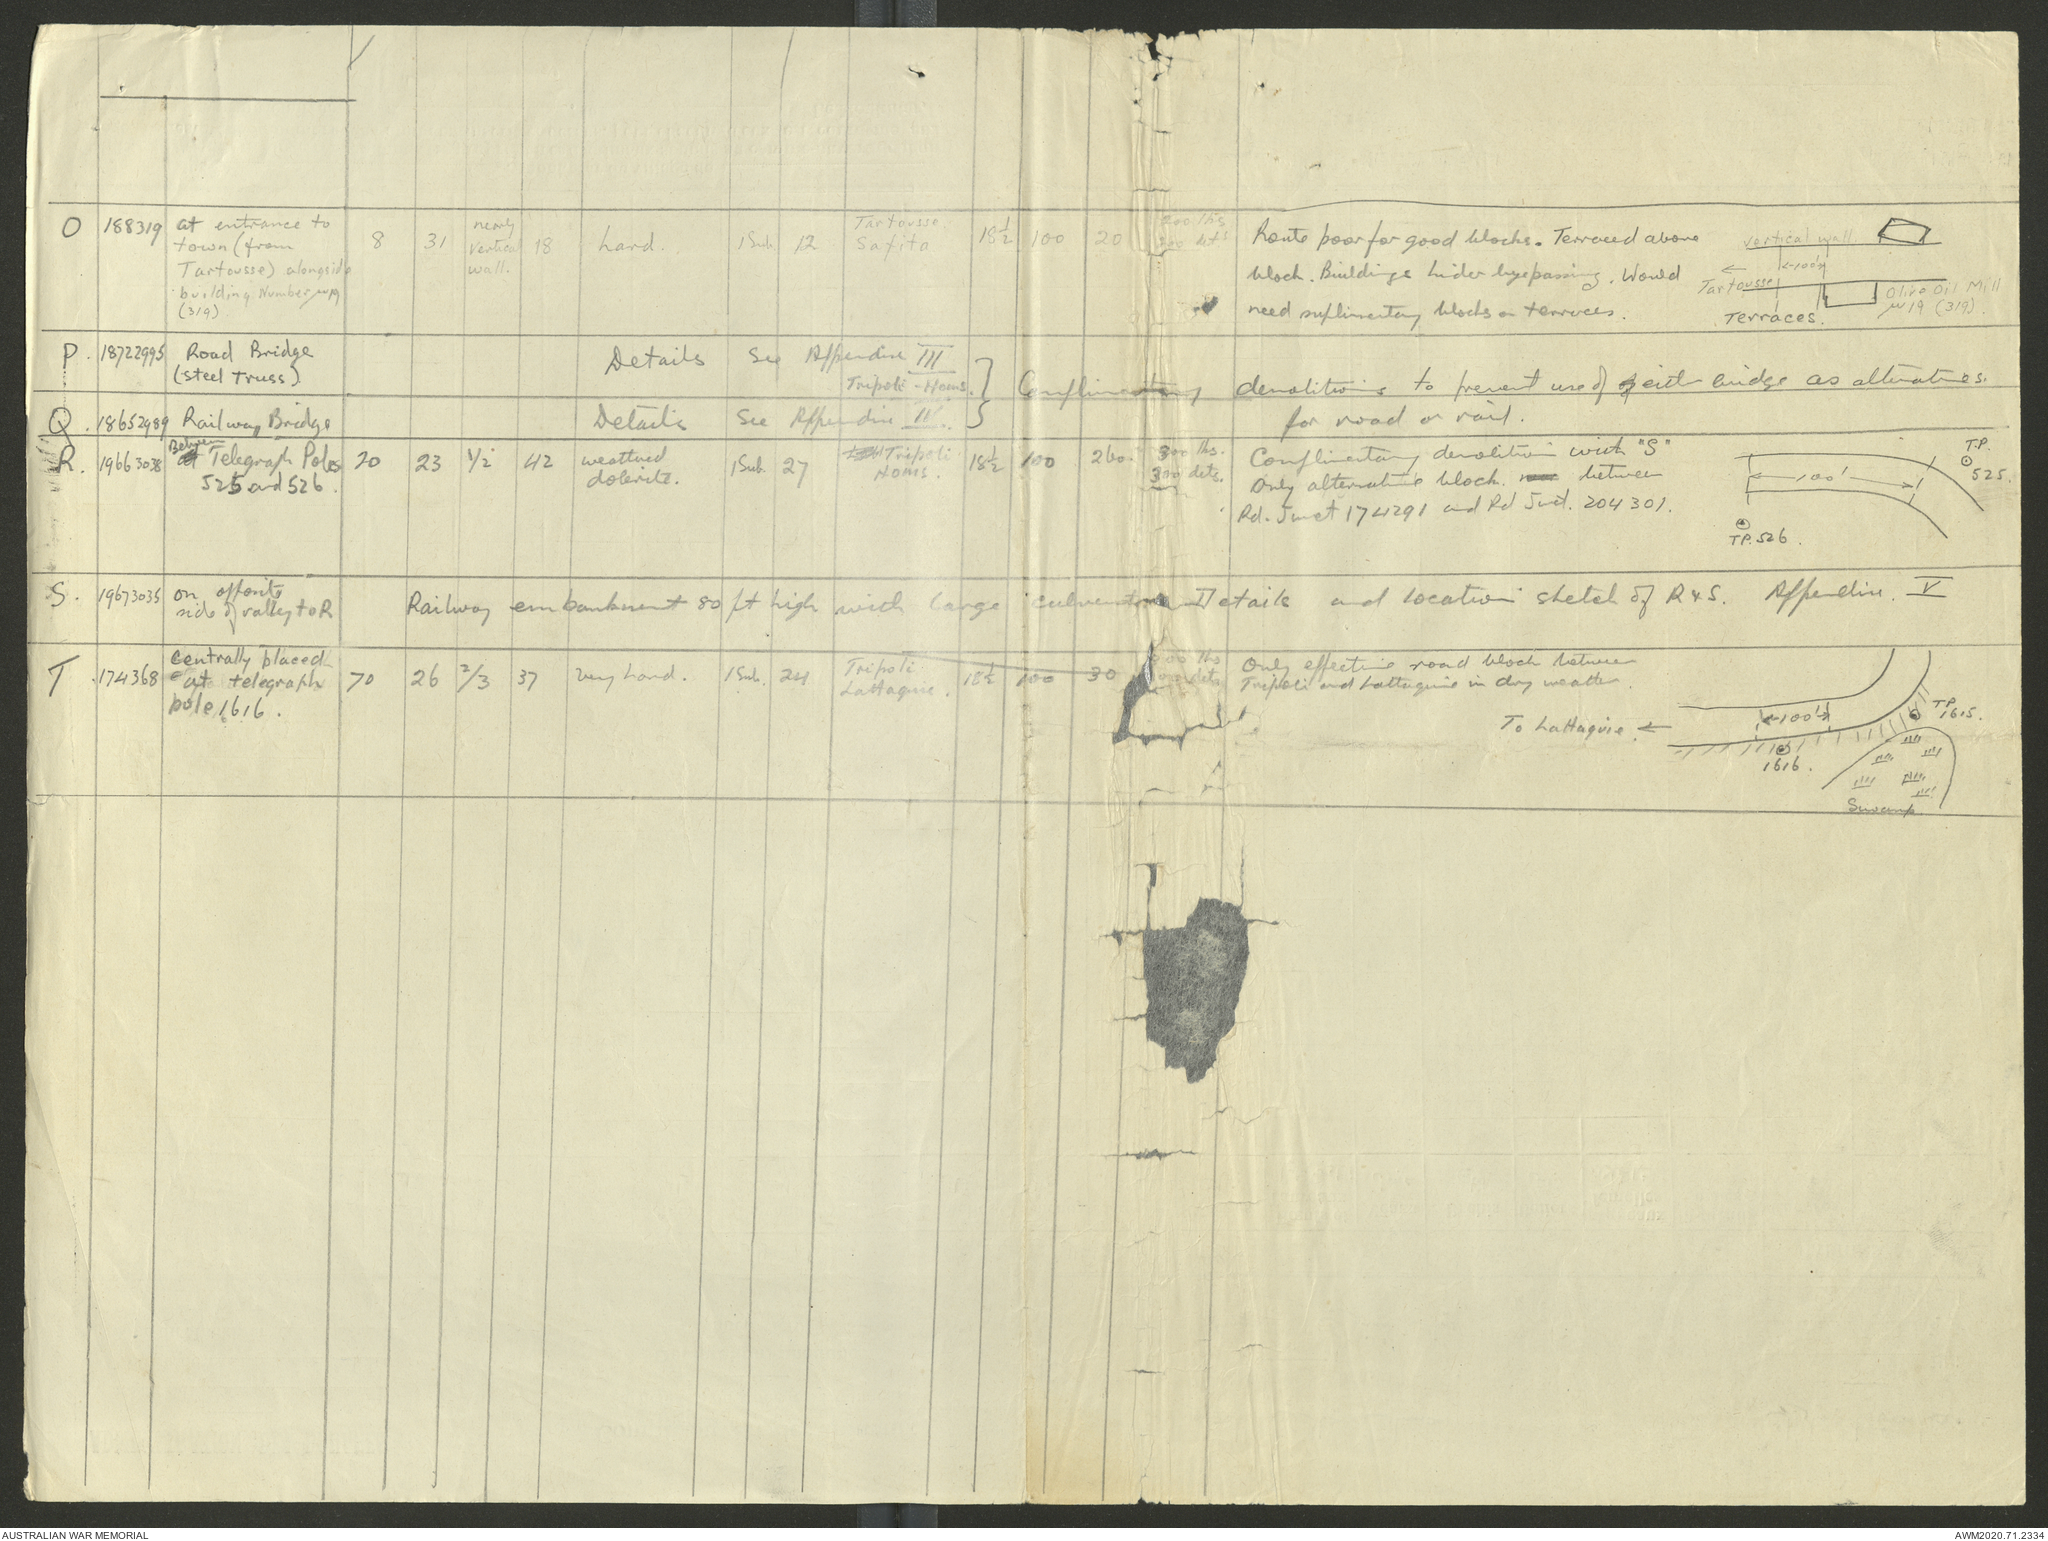 O 188319 at entrance to
town (from
Tartousse) alongside
building Number
(319)
8 31 nearly
vertical
wall. 18 hard. 1 Sub. 12 Tartousse
Safita 18½ 100 20 200 lbs
200 dets
Route poor for good blocks. Terraced above
block. Buildings hinder byepassing. Would
need suplimentary blocks on terraces.
vertical wall
100'
Tartousse
Olive Oil Mill
19 (319).
Terraces.
P. 18722995 Road Bridge
(steel Truss)
Details See Appendix III
Tripoli - Homs.
Q. 18652989 Railway Bridge Details See Appendix IV.
Complimentary demolitions to prevent use of either bridge as alternatives.
for road or rail.
R. 19663038 Between
at Telegraph Poles
525 and 526.
20 23 1/2 42 weathered
dolerite. 1 Sub. 27 Tripoli
Homs. 18½ 100 260. 300 lbs.
300 dets.
Complimentary demolition with "S"
Only alternative block between
Rd. Junct 174291 and Rd Junct. 204301.
100'
T.P.
525.
T.P. 526.
S. 19673035 on opposite
side of valley to R
Railway embankment 80 ft high with large culvert Details and location sketch of R & S. Appendix. V
T 174368 centrally placed
at telegraph
pole 1616.
70 26 2/3 37 very hard. 1 Sub. 24 Tripoli
Lattaquie. 18½ 100 30 lbs
dets
Only effective road block between
Tripoli and Lattaquie in dry weather.
To Lattaquie
100'
T.P.
1615.
1616.
Swamp
AUSTRALIAN WAR MEMORIAL
AWM2020.71.2334